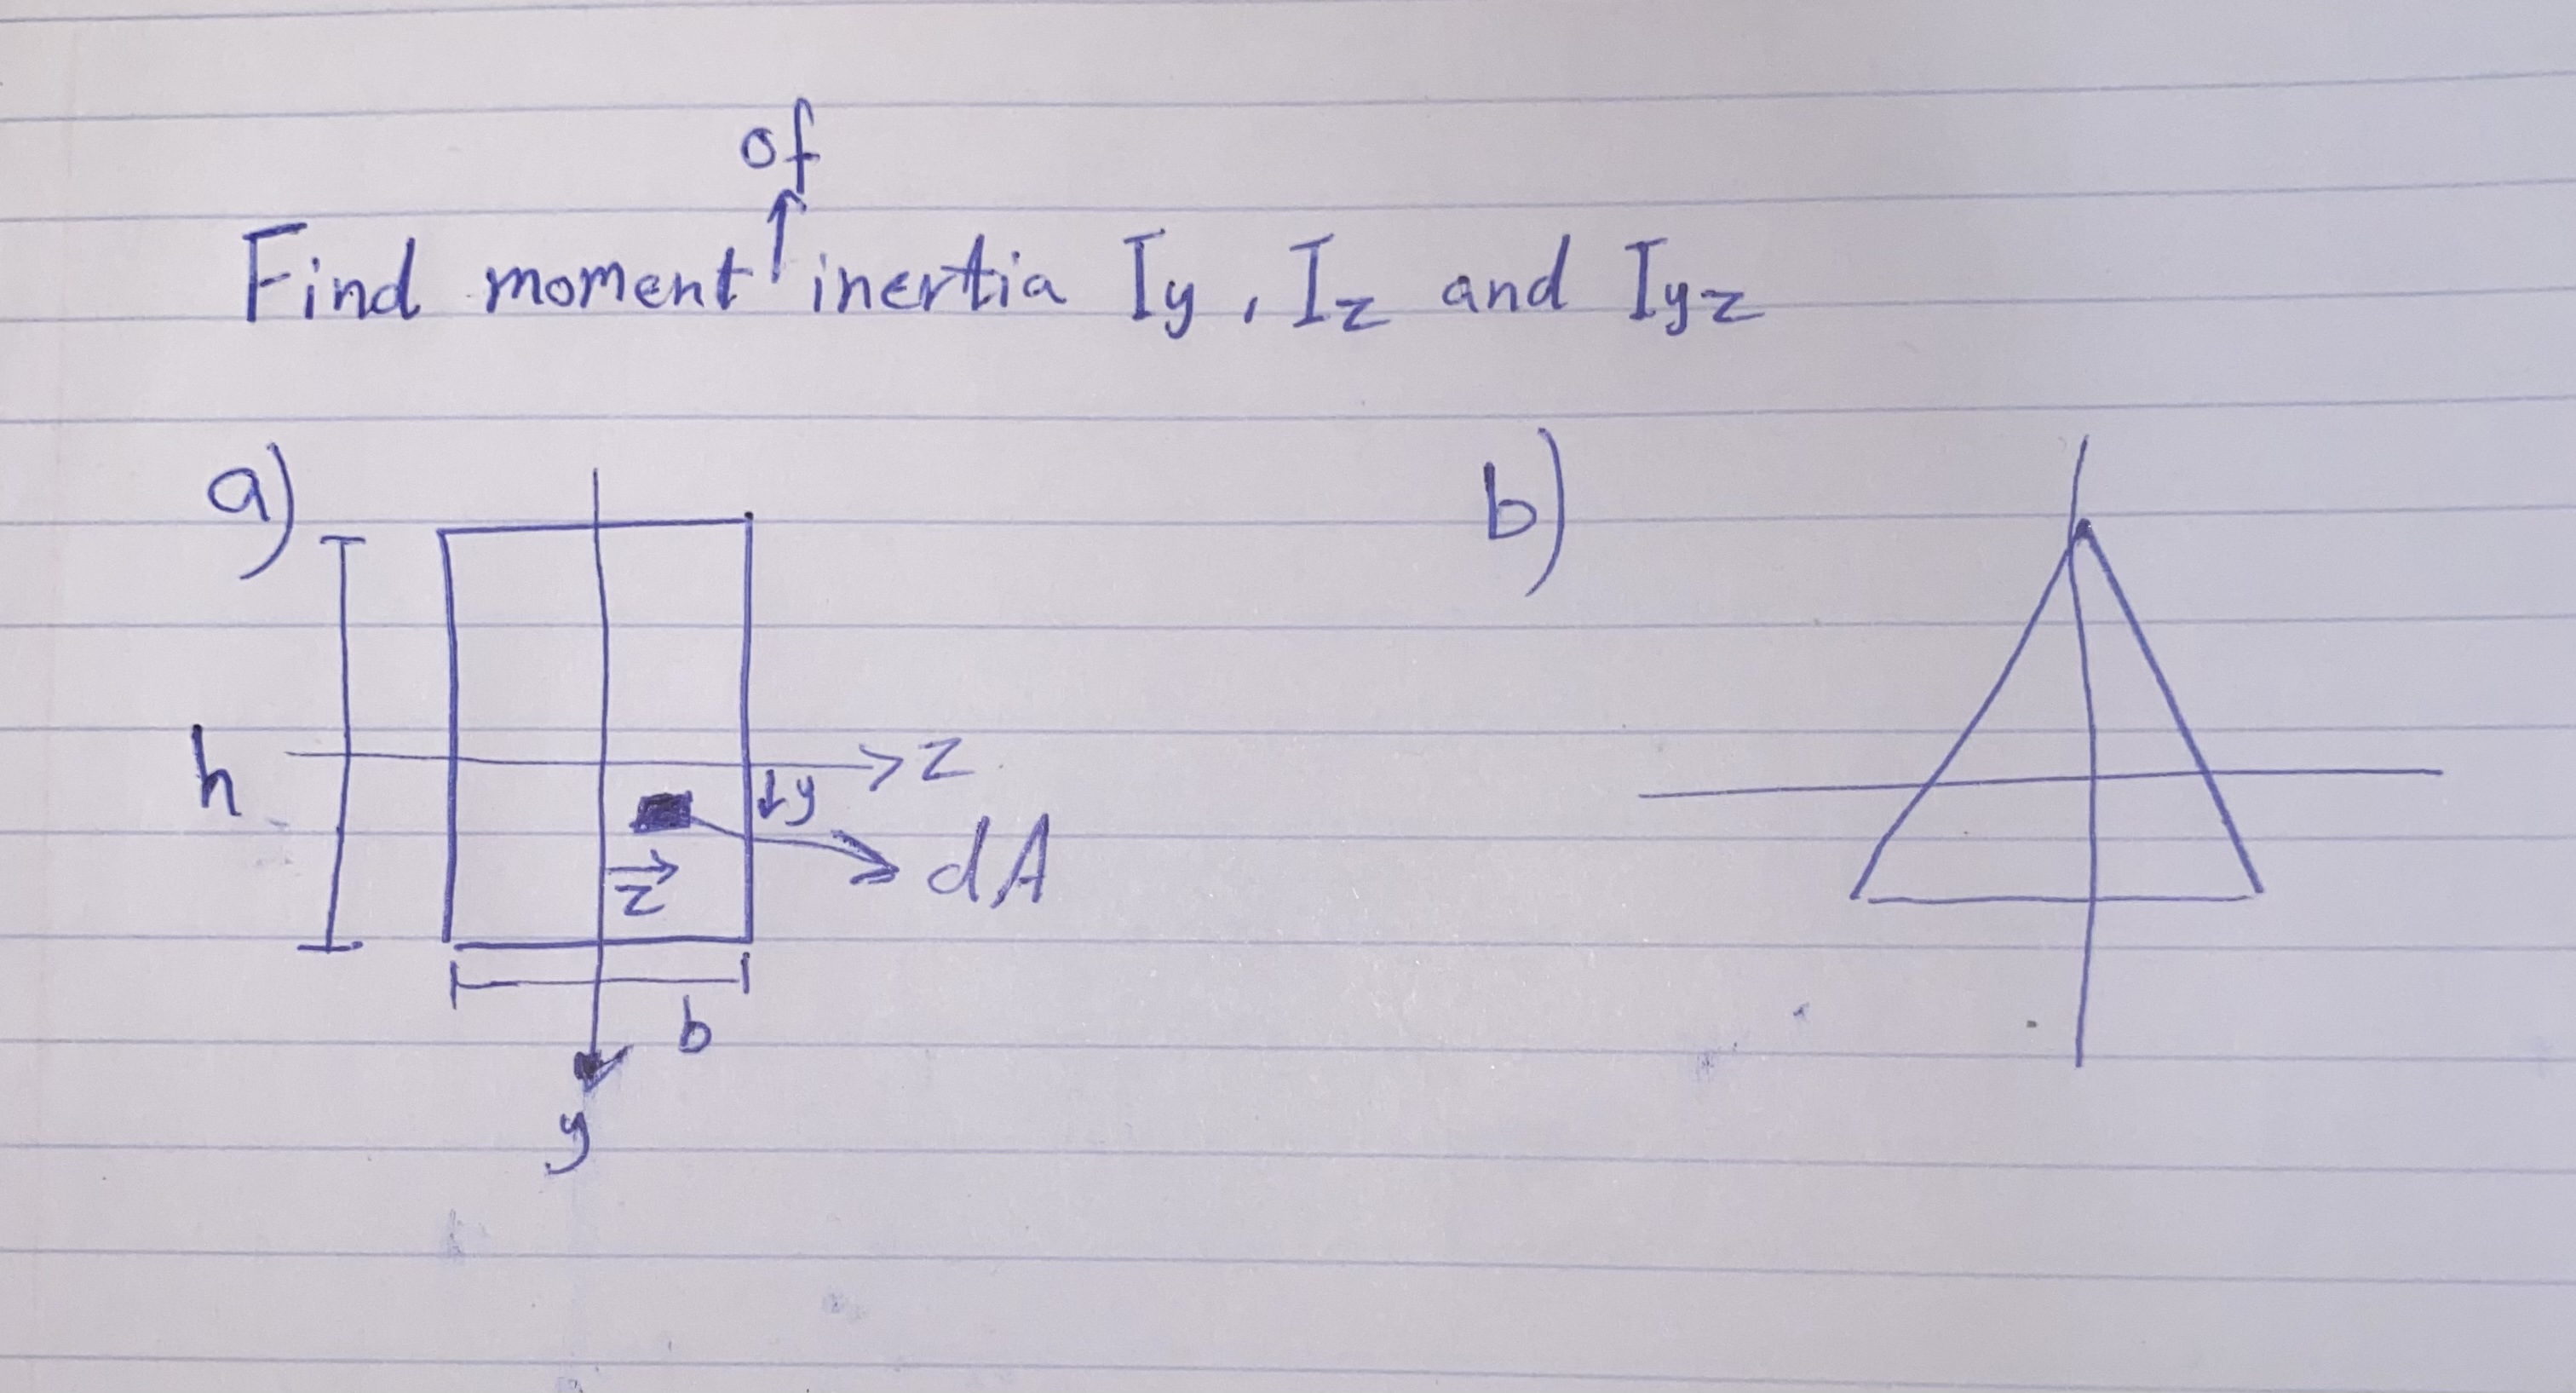 of
Find moment inertia Iy, Iz and Iyz
a)
b)
h
z
y
dA
z
b
y